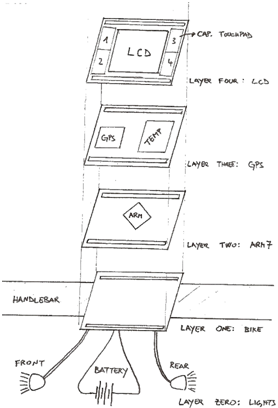 1
2
LCD
3
4
CAP. TOUCHPAD
LAYER FOUR: LCD
GPS
TEMP
LAYER THREE: GPS
ARM
LAYER TWO: ARM7
HANDLEBAR
LAYER ONE: BIKE
FRONT
BATTERY
REAR
LAYER ZERO: LIGHTS